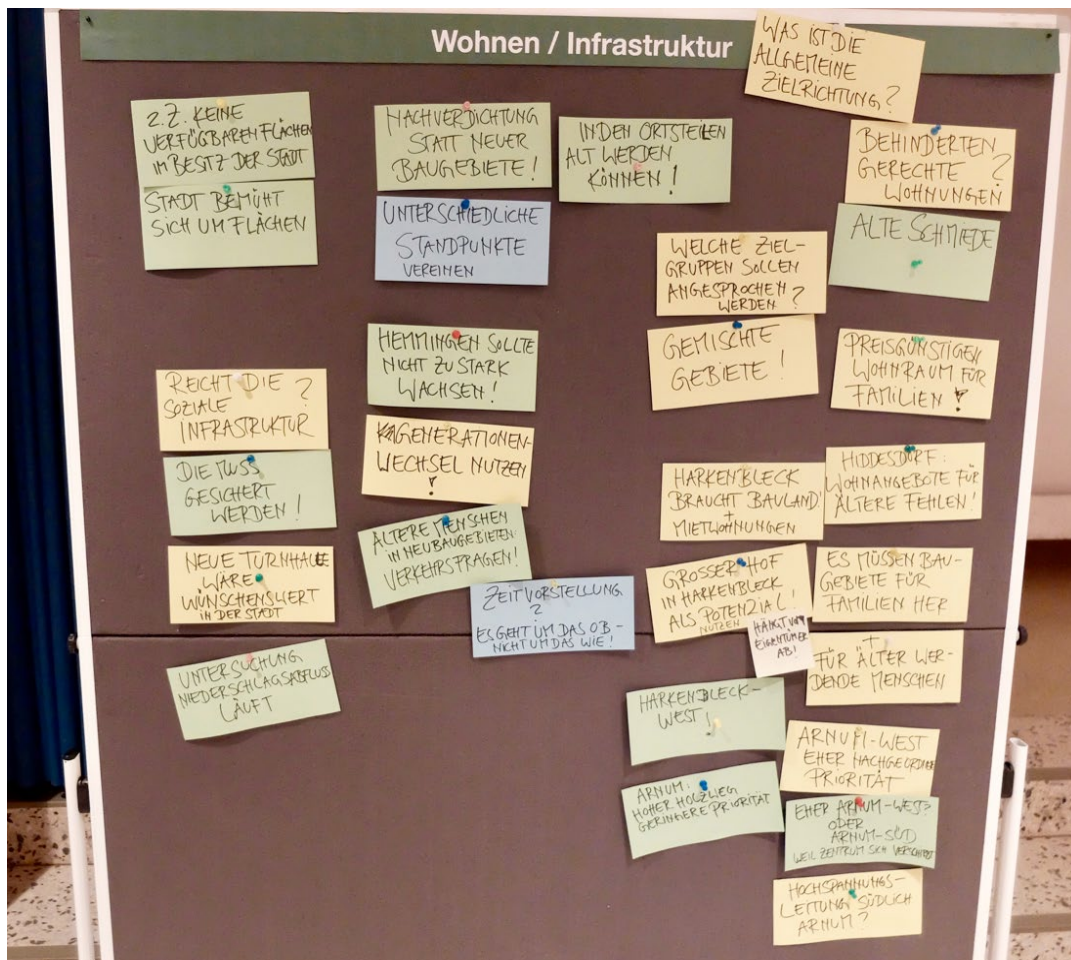 Wohnen / Infrastruktur
WAS IST DIE
ALLGEMEINE
ZIELRICHTUNG?
Z.Z. KEINE
VERFÜGBAREN FLÄCHEN
IM BESITZ DER STADT
STADT BEMÜHT
SICH UM FLÄCHEN
REICHT DIE ?
SOZIALE
INFRASTRUKTUR
DIE MUSS
GESICHERT
WERDEN!
NEUE TURNHALLE
WÄRE
WÜNSCHENSWERT
IN DER STADT
UNTERSUCHUNG
NIEDERSCHLAGSABFLUSS
LÄUFT
NACHVERDICHTUNG
STATT NEUER
BAUGEBIETE!
UNTERSCHIEDLICHE
STANDPUNKTE
VEREINEN
HEMMINGEN SOLLTE
NICHT ZU STARK
WACHSEN!
GENERATIONEN-
WECHSEL NUTZEN
!
ÄLTERE MENSCHEN
IN NEUBAUGEBIETEN
VERKEHRSFRAGEN!
ZEITVORSTELLUNG
?
ES GEHT UM DAS OB -
NICHT UM DAS WIE!
IN DEN ORTSTEILEN
ALT WERDEN
KÖNNEN!
WELCHE ZIEL-
GRUPPEN SOLLEN
ANGESPROCHEN
WERDEN?
GEMISCHTE
GEBIETE!
HARKENBLECK
BRAUCHT BAULAND!
+
MIETWOHNUNGEN
GROSSER HOF
IN HARKENBLECK
ALS POTENZIAL!
NUTZEN
HÄNGT VOM
EIGENTÜMER
AB!
HARKENBLECK-
WEST!
ARNUM:
HOHER HOLZWEG
GERINGERE PRIORITÄT
BEHINDERTEN
GERECHTE ?
WOHNUNGEN
ALTE SCHMIEDE
PREISGÜNSTIGEN
WOHNRAUM FÜR
FAMILIEN !
HIDDESDORF:
WOHNANGEBOTE FÜR
ÄLTERE FEHLEN!
ES MÜSSEN BAU-
GEBIETE FÜR
FAMILIEN HER
+
FÜR ÄLTER WER-
DENDE MENSCHEN
ARNUM-WEST
EHER NACHGEORDNETE
PRIORITÄT
EHER ARNUM-WEST?
ODER
ARNUM-SÜD
WEIL ZENTRUM SICH VERSCHIEBT
HOCHSPANNUNGS-
LEITUNG SÜDLICH
ARNUM?